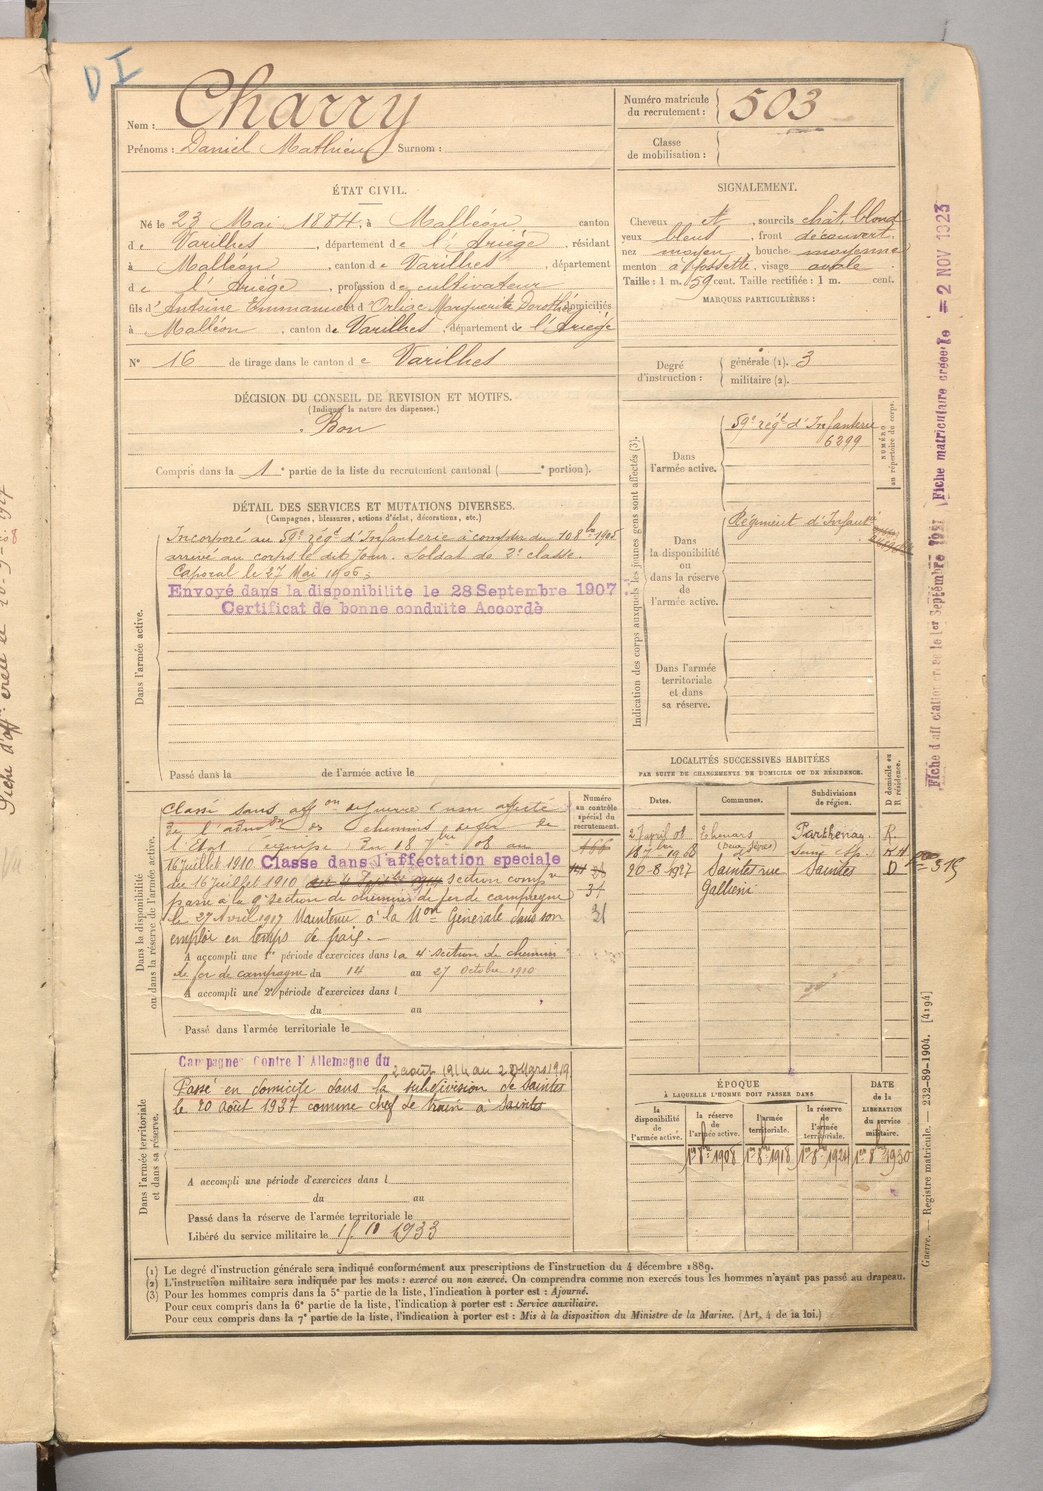 D I
Nom : Charry
Prénoms : Daniel Mathieu Surnom :
Numéro matricule du recrutement : 503
Classe de mobilisation :
ÉTAT CIVIL.
Né le 23 Mai 1884, à Malléon canton
de Varilhes, département de l'Ariège, résidant
à Malléon, canton de Varilhes, département
de l'Ariège, profession de cultivateur
fils d'Antoine Emmanuel et d'Orliac Marguerite Dorothée, domiciliés
à Malléon, canton de Varilhes, département de l'Ariège
N° 16 de tirage dans le canton de Varilhes
SIGNALEMENT.
Cheveux et, sourcils chât. blond
yeux bleus, front découvert
nez moyen, bouche moyenne
menton à fossette, visage ovale
Taille : 1 m. 59 cent. Taille rectifiée : 1 m. cent.
MARQUES PARTICULIÈRES :
Degré d'instruction : générale (1). 3
militaire (2).
DÉCISION DU CONSEIL DE REVISION ET MOTIFS.
(Indiquer la nature des dispenses.)
Bon
Compris dans la 1e partie de la liste du recrutement cantonal ( e portion).
DÉTAIL DES SERVICES ET MUTATIONS DIVERSES.
(Campagnes, blessures, actions d'éclat, décorations, etc.)
Dans l'armée active.
Incorporé au 59e régt d'Infanterie à compter du 10 8bre 1905
arrivé au corps le dit jour. Soldat de 2e classe.
Caporal le 27 Mai 1906.
Envoyé dans la disponibilité le 28 Septembre 1907
Certificat de bonne conduite Accordé
Passé dans la de l'armée active le
Indication des corps auxquels les jeunes gens sont affectés (3).
NUMÉRO au répertoire du corps.
Dans l'armée active.
59e régt d'Infanterie
6299
Dans la disponibilité ou dans la réserve de l'armée active.
Régiment d'Infanterie
Dans l'armée territoriale et dans sa réserve.
LOCALITÉS SUCCESSIVES HABITÉES
PAR SUITE DE CHANGEMENTS DE DOMICILE OU DE RÉSIDENCE.
Dates. Communes. Subdivisions de région. D domicile ou R résidence.
27 avril 08 Thouars (Deux Sèvres) Parthenay. R.
18 7bre 1908
20-8-1927 Saintes rue Gallieni Saintes D
Dans la disponibilité ou dans la réserve de l'armée active.
Numéro au contrôle spécial du recrutement.
Classé sans affon de guerre (non affecté
de l'admon des chemins de fer de
l'État équipe du 18 7bre 08 au
16 juillet 1910 Classe dans l'affectation speciale
du 16 juillet 1910 section
passé à la 9e section de chemins de fer de campagne
le 27 Avril 1917 Maintenu à la Mon Générale dans son
emploi en temps de paix.
A accompli une 1re période d'exercices dans la 4e section de chemin
de fer de campagne du 14 au 27 octobre 1910
A accompli une 2e période d'exercices dans l
du au
Passé dans l'armée territoriale le
Dans l'armée territoriale et dans sa réserve.
Campagne Contre l'Allemagne du 2 août 1914 au 22 Mars 1919
Passé en domicile dans la subdivision de Saintes
le 20 Août 1927 comme chef de train à Saintes
A accompli une période d'exercices dans l
du au
Passé dans la réserve de l'armée territoriale le
Libéré du service militaire le 15 10 1933
ÉPOQUE
À LAQUELLE L'HOMME DOIT PASSER DANS
la disponibilité de l'armée active. la réserve de l'armée active. l'armée territoriale. la réserve de l'armée territoriale.
DATE de la LIBÉRATION du service militaire.
1er 8bre 1908 1er 8bre 1918 1er 8bre 1924 1er 8bre 1930
(1) Le degré d'instruction générale sera indiqué conformément aux prescriptions de l'instruction du 4 décembre 1889.
(2) L'instruction militaire sera indiquée par les mots : exercé ou non exercé. On comprendra comme non exercés tous les hommes n'ayant pas passé au drapeau.
(3) Pour les hommes compris dans la 5e partie de la liste, l'indication à porter est : Ajourné.
Pour ceux compris dans la 6e partie de la liste, l'indication à porter est : Service auxiliaire.
Pour ceux compris dans la 7e partie de la liste, l'indication à porter est : Mis à la disposition du Ministre de la Marine. (Art. 4 de la loi.)
Guerre. — Registre matricule. — 232-89-1904. [4194]
Fiche d'affectation créée le 1er Septembre 1927 Fiche matriculaire créée le = 2 NOV 1923